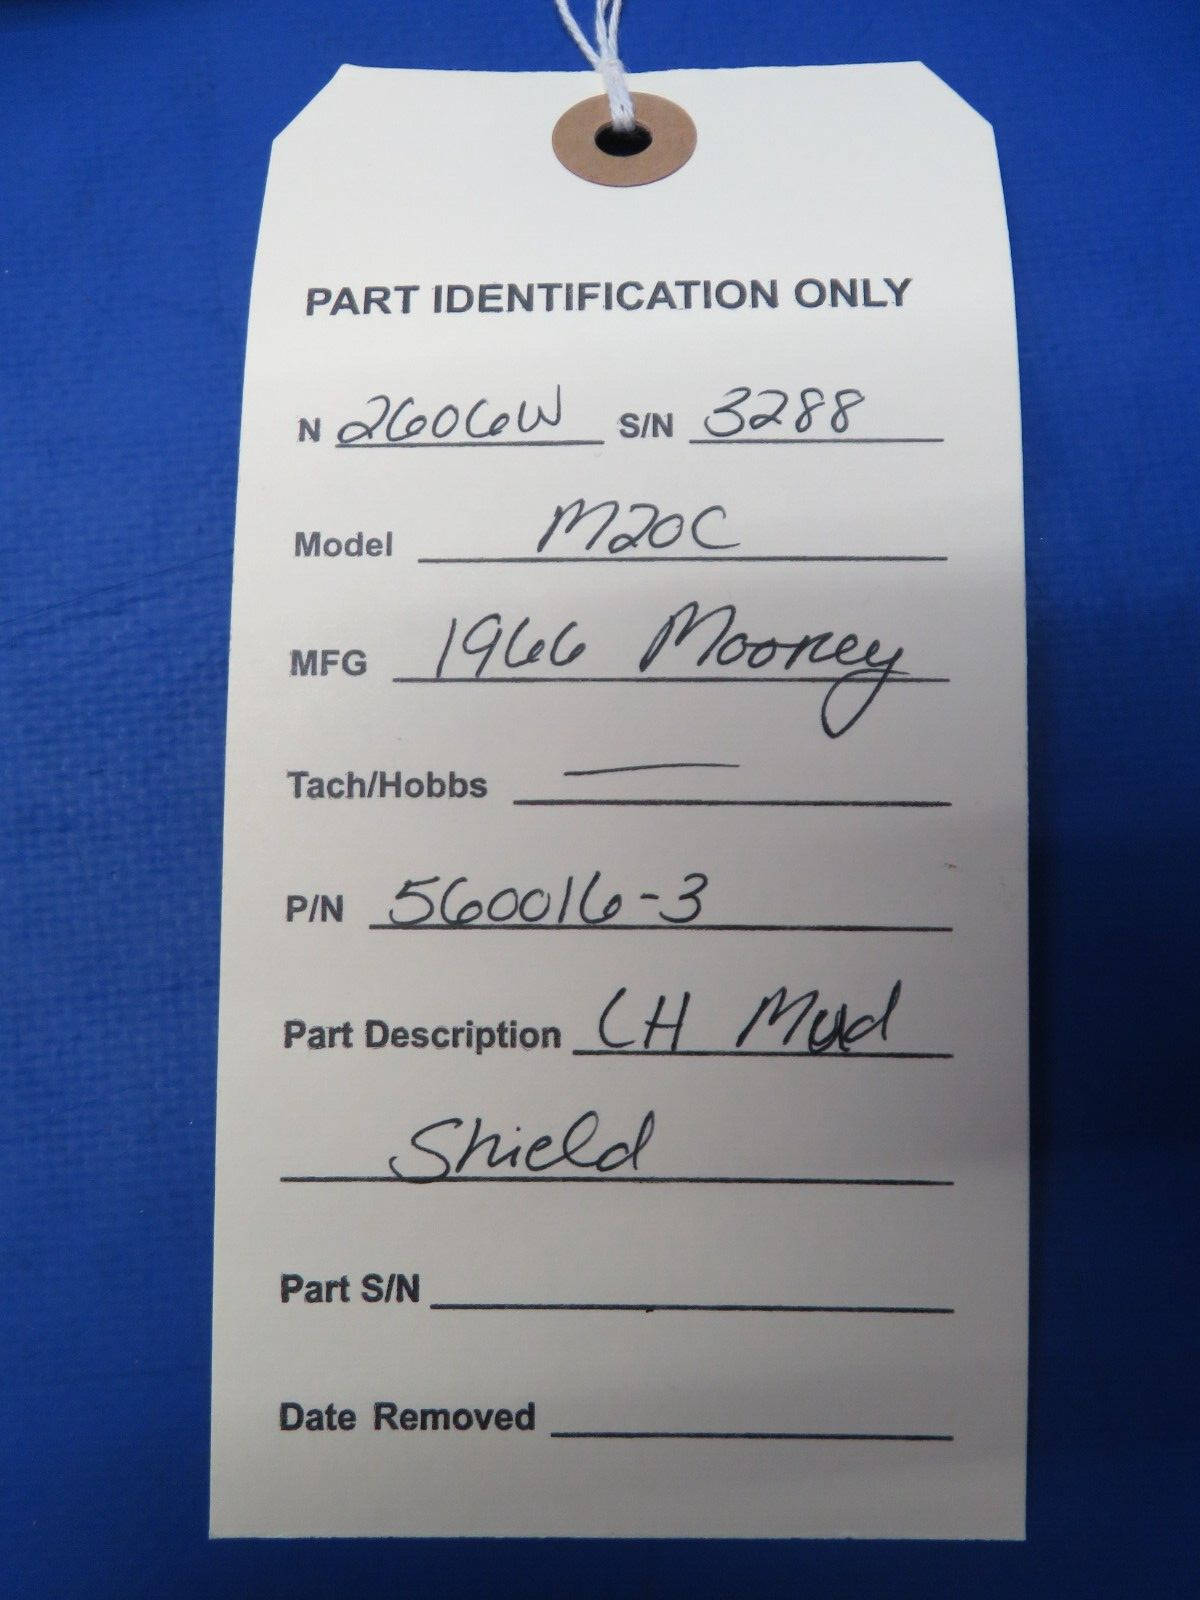 PART IDENTIFICATION ONLY
N 2606W S/N 3288
Model M20C
MFG 1966 Mooney
Tach/Hobbs —
P/N 560016-3
Part Description LH Mud
Shield
Part S/N
Date Removed